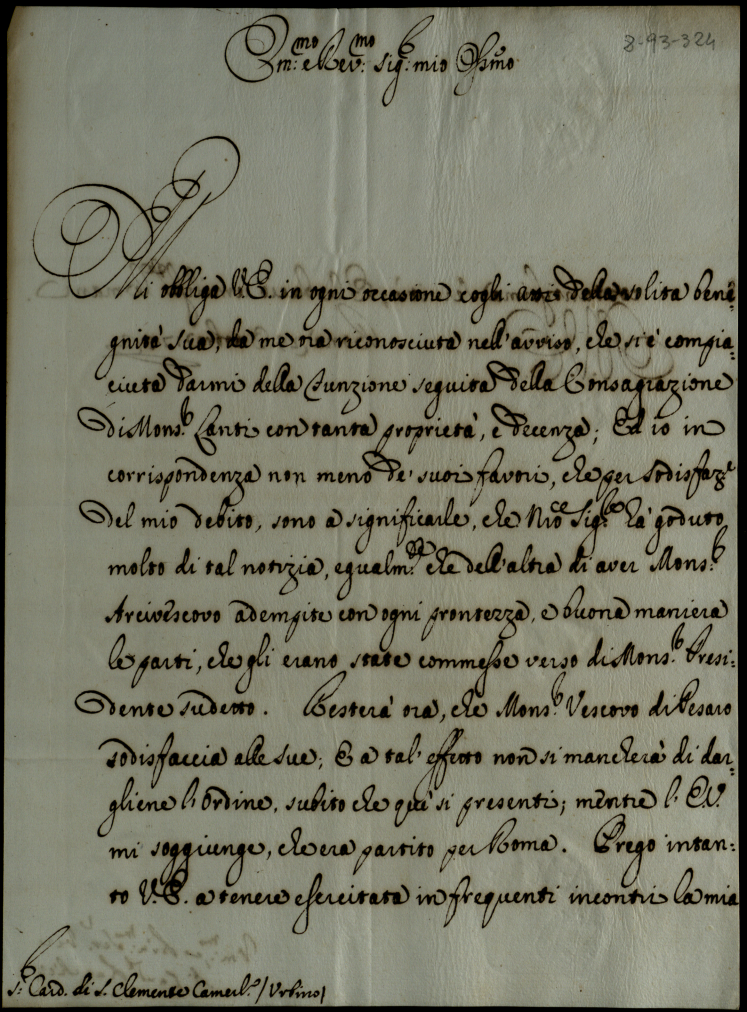 8-93-324
Em.mo e Rev.mo Sig.r mio Oss.mo
Mi obbliga V.E. in ogni occasione cogli atti della solita beni-
gnità sua, da me ora riconosciuta nell'avviso, che si è compia-
ciuta darmi della funzione seguita della Consagrazione
di Mons.r Lanti con tanta proprietà, e decenza; Ed io in
corrispondenza non meno de' suoi favori, che per sodisfaz.e
del mio debito, sono a significarle, che N'ro Sig.re hà goduto
molto di tal notizia, egualm.te che dell'altra di aver Mons.r
Arcivescovo adempite con ogni prontezza, e buona maniera
le parti, che gli erano state commesse verso di Mons.r Presi-
dente sudetto. Resterà ora, che Mons.r Vescovo di Pesaro
sodisfaccia alle sue; E a tal' effetto non si mancherà di dar-
gliene l'ordine, subito che quì si presenti; mentre l'E.V.
mi soggiunge, che era partito per Roma. Prego intan-
to V.E. a tenere esercitata in frequenti incontri la mia
S.r Card. di S. Clemente Camerl.o /Urbino/